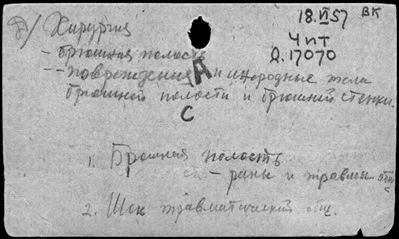 Хирургия
18.VI 57 ВК
Ч ит
Д.17070
- брюшная полость
-- повреждения и инородные тела
брюшной полости и брюшной стенки.
А
С
1. Брюшная полость
- раны и травмы
2. Шок травматический общ.